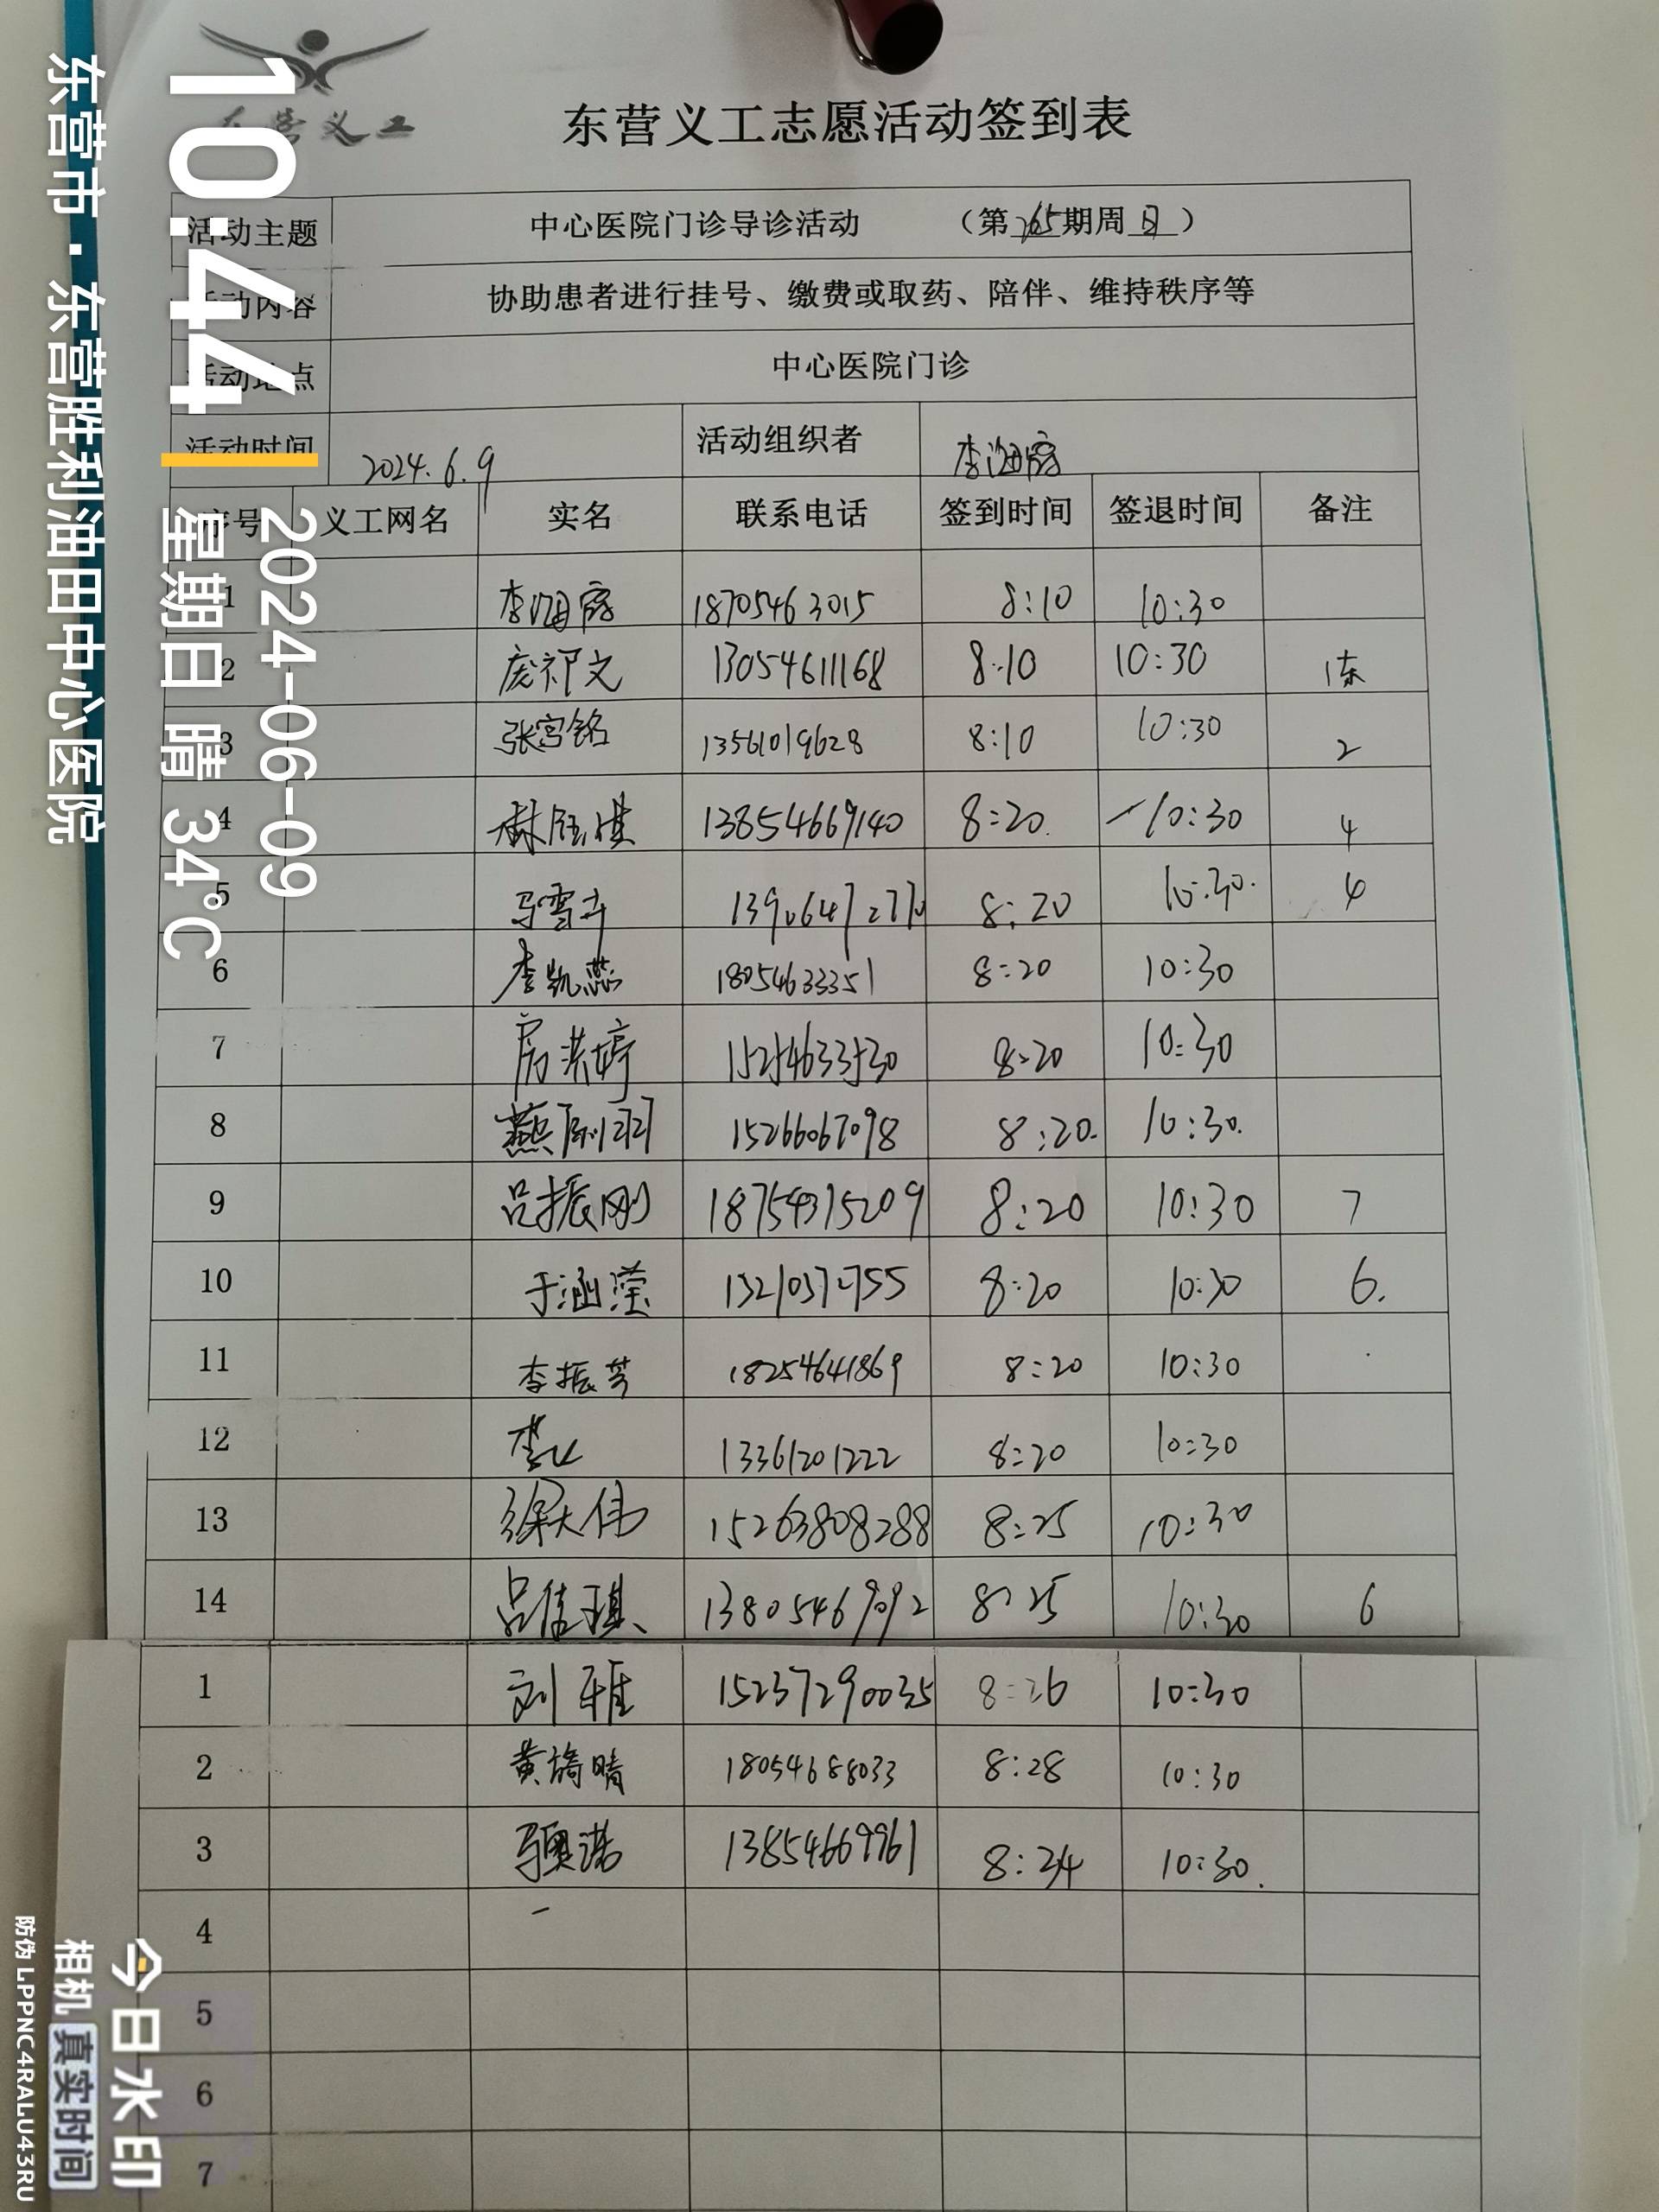 东营义工
东营义工志愿活动签到表
活动主题 中心医院门诊导诊活动 （第265期周日）
活动内容 协助患者进行挂号、缴费或取药、陪伴、维持秩序等
活动地点 中心医院门诊
活动时间 2024.6.9 活动组织者
序号 义工网名 实名 联系电话 签到时间 签退时间 备注
1 18705463015 8:10 10:30
2 庞祁文 13054611168 8:10 10:30 1东
3 张宫铭 13561019628 8:10 10:30 2
4 13854669140 8:20 10:30 4
5 8:20 10:30 4
6 李凯蕊 18054633351 8:20 10:30
7 房洪婷 15254633530 8:20 10:30
8 15266067098 8:20 10:30
9 吕振刚 18754315209 8:20 10:30 7
10 于涵滢 8:20 10:30 6
11 李振芳 18254641869 8:20 10:30
12 13361201222 8:20 10:30
13 徐大伟 15263808288 8:25 10:30
14 吕佳琪 8:25 10:30 6
1 刘雅 15237290035 8:26 10:30
2 黄旖晴 18054688033 8:28 10:30
3 马奥诺 13854669961 8:24 10:30
4
5
6
7
10:44
2024-06-09
星期日 晴 34℃
东营市·东营胜利油田中心医院
今日水印
相机 真实时间
防伪 LPPNC4RALU43RU